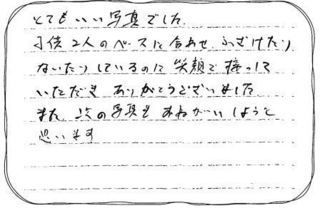 とてもいい写真でした
子供2人のペースに合わせ、ふざけたり
ないたりしているのに笑顔で接して
いただき ありがとうございました
また 次の写真も おねがいしようと
思います